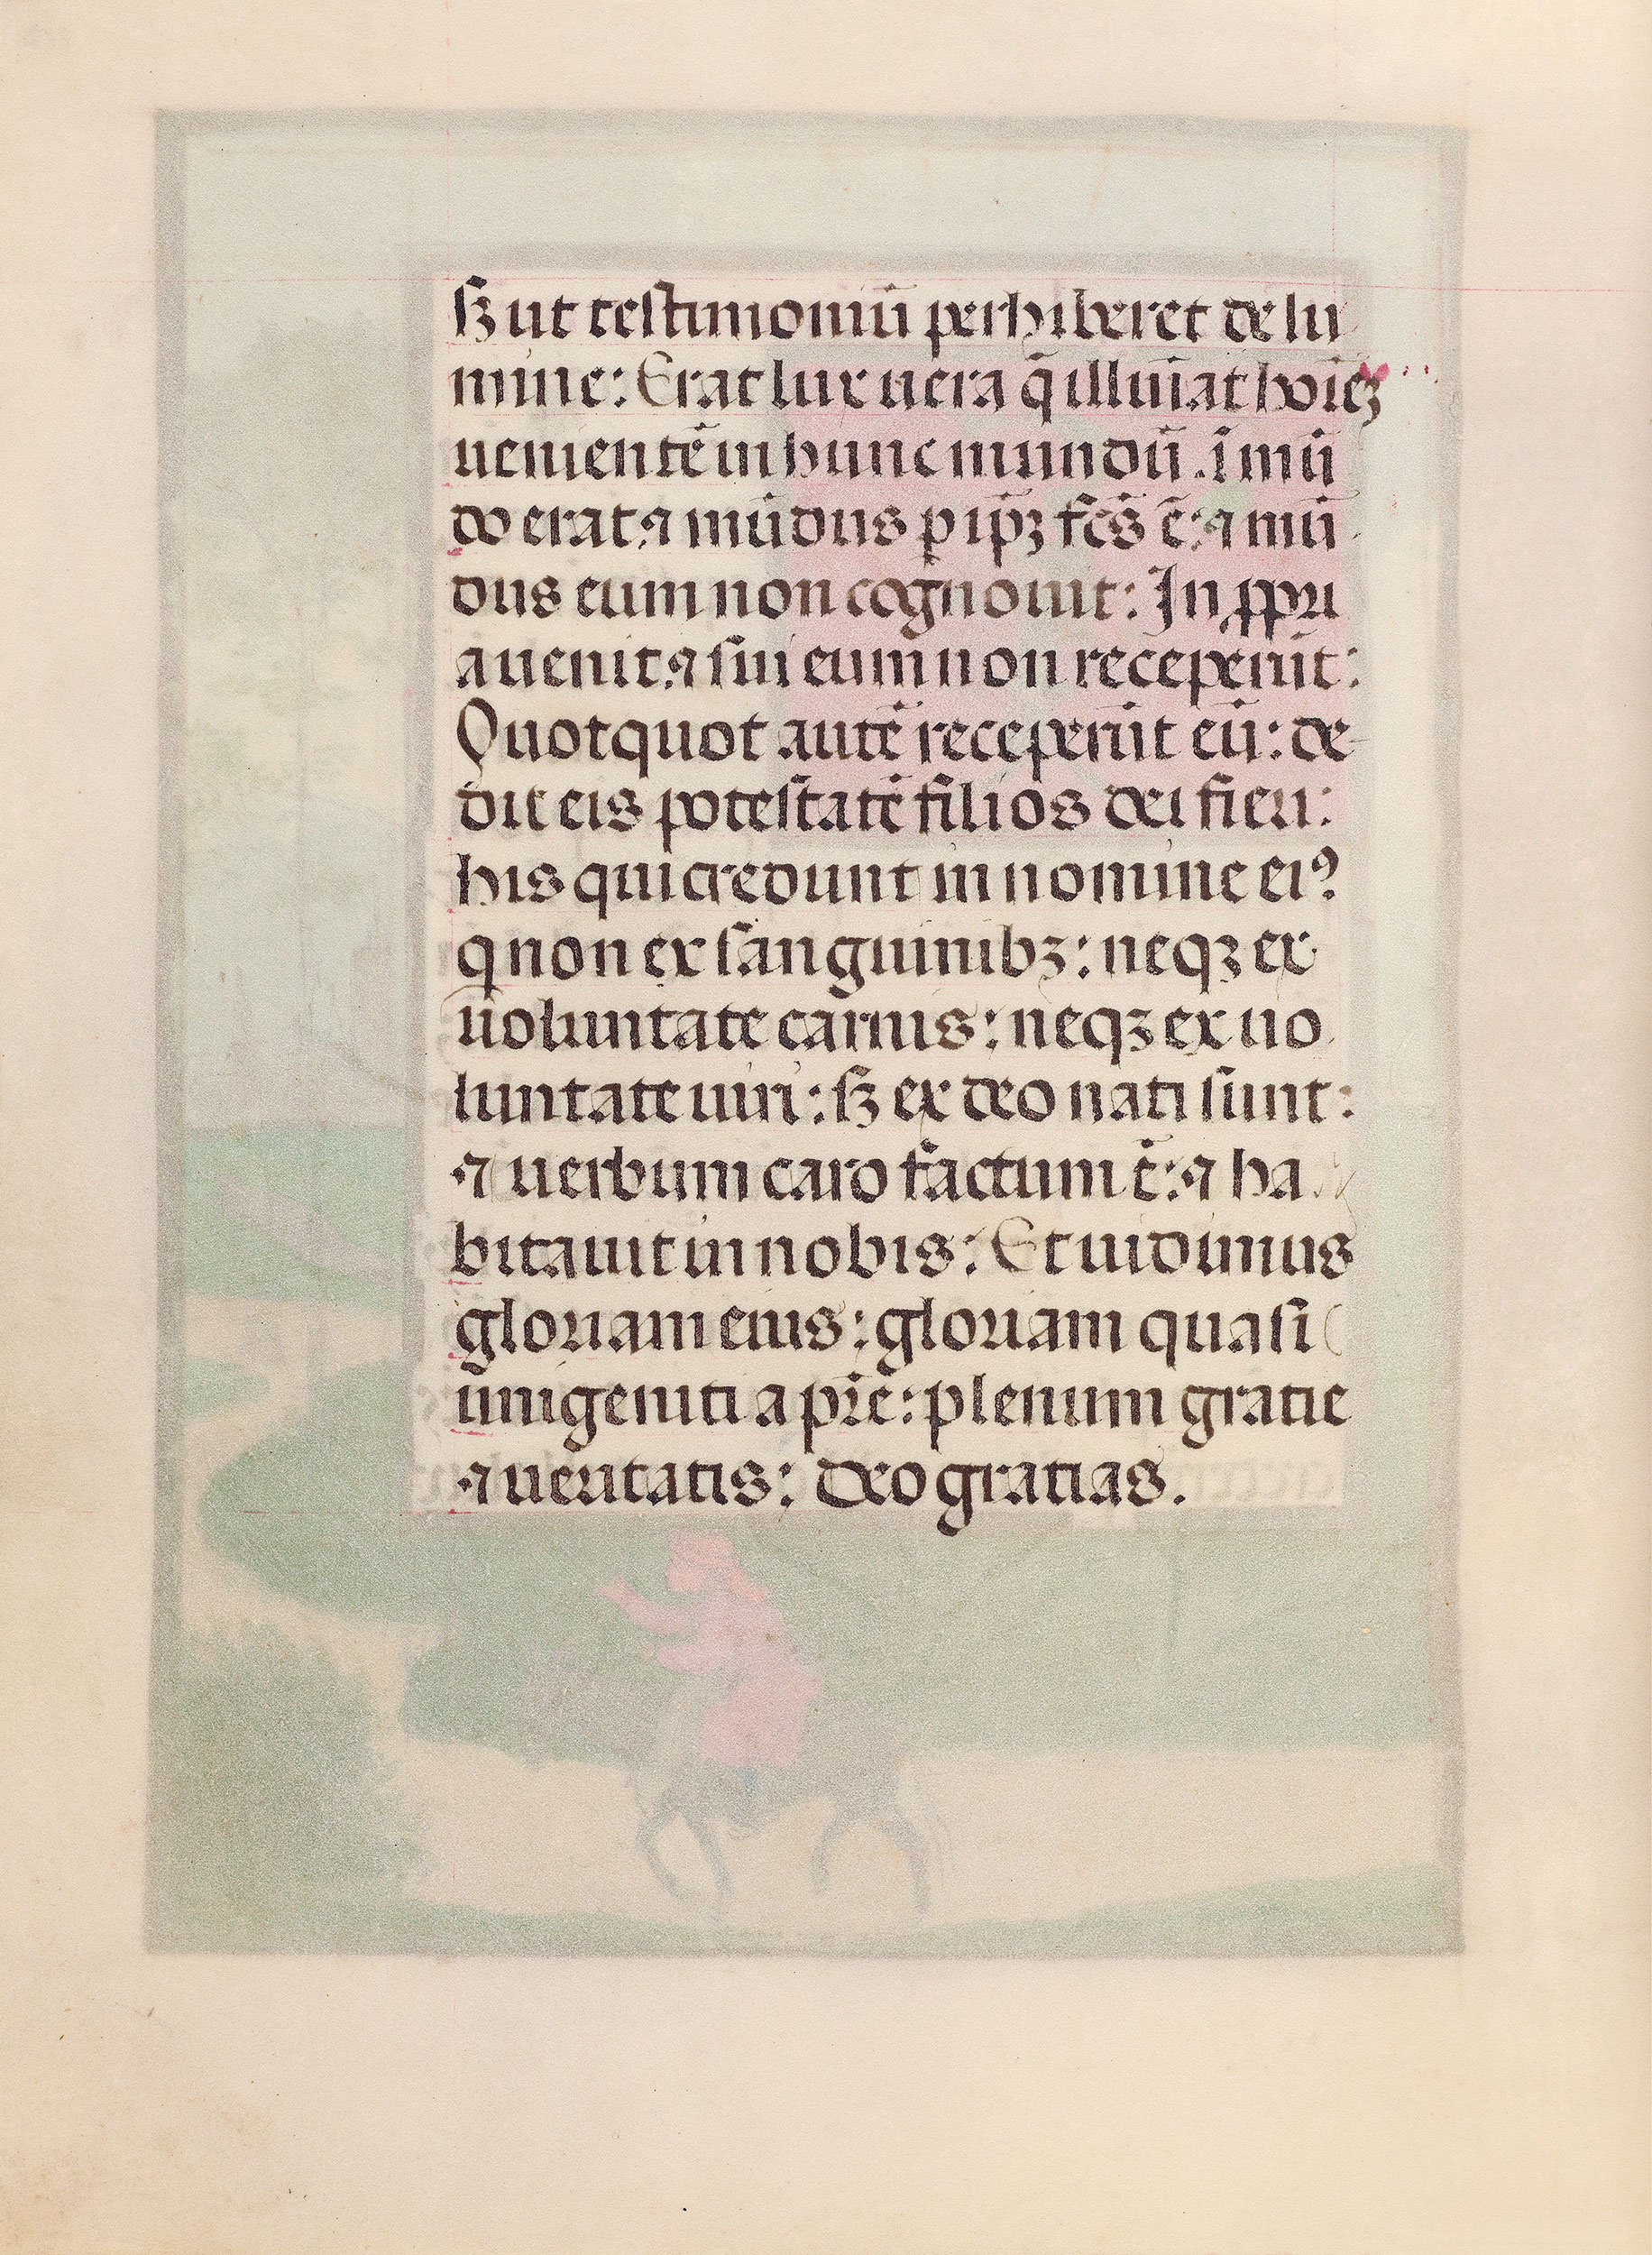 sꝫ ut testimoniū perhiberet de lu
mine: Erat lux uera q̄ illuīat hoīeꝫ
uenientē in hunc mundū. ī mū
do erat. ⁊ mūdus ꝑ ip̄ꝫ fc̄s ē: ⁊ mū
dus eum non cognouit: In ꝓpri
a uenit. ⁊ sui eum non receperūt:
Quotquot autē receperūt eū: de
dit eis potestatē filios dei fieri:
his qui credunt in nomine eiꝰ
q̄ non ex sanguinibꝫ: neqꝫ ex
uoluntate carnis: neqꝫ ex uo
luntate uiri: sꝫ ex deo nati sunt:
⁊ uerbum caro factum ē: ⁊ ha
bitauit in nobis: Et uidimus
gloriam eius: gloriam quasi
unigeniti a pr̄e: plenum gratie
⁊ ueritatis: deo gratias.